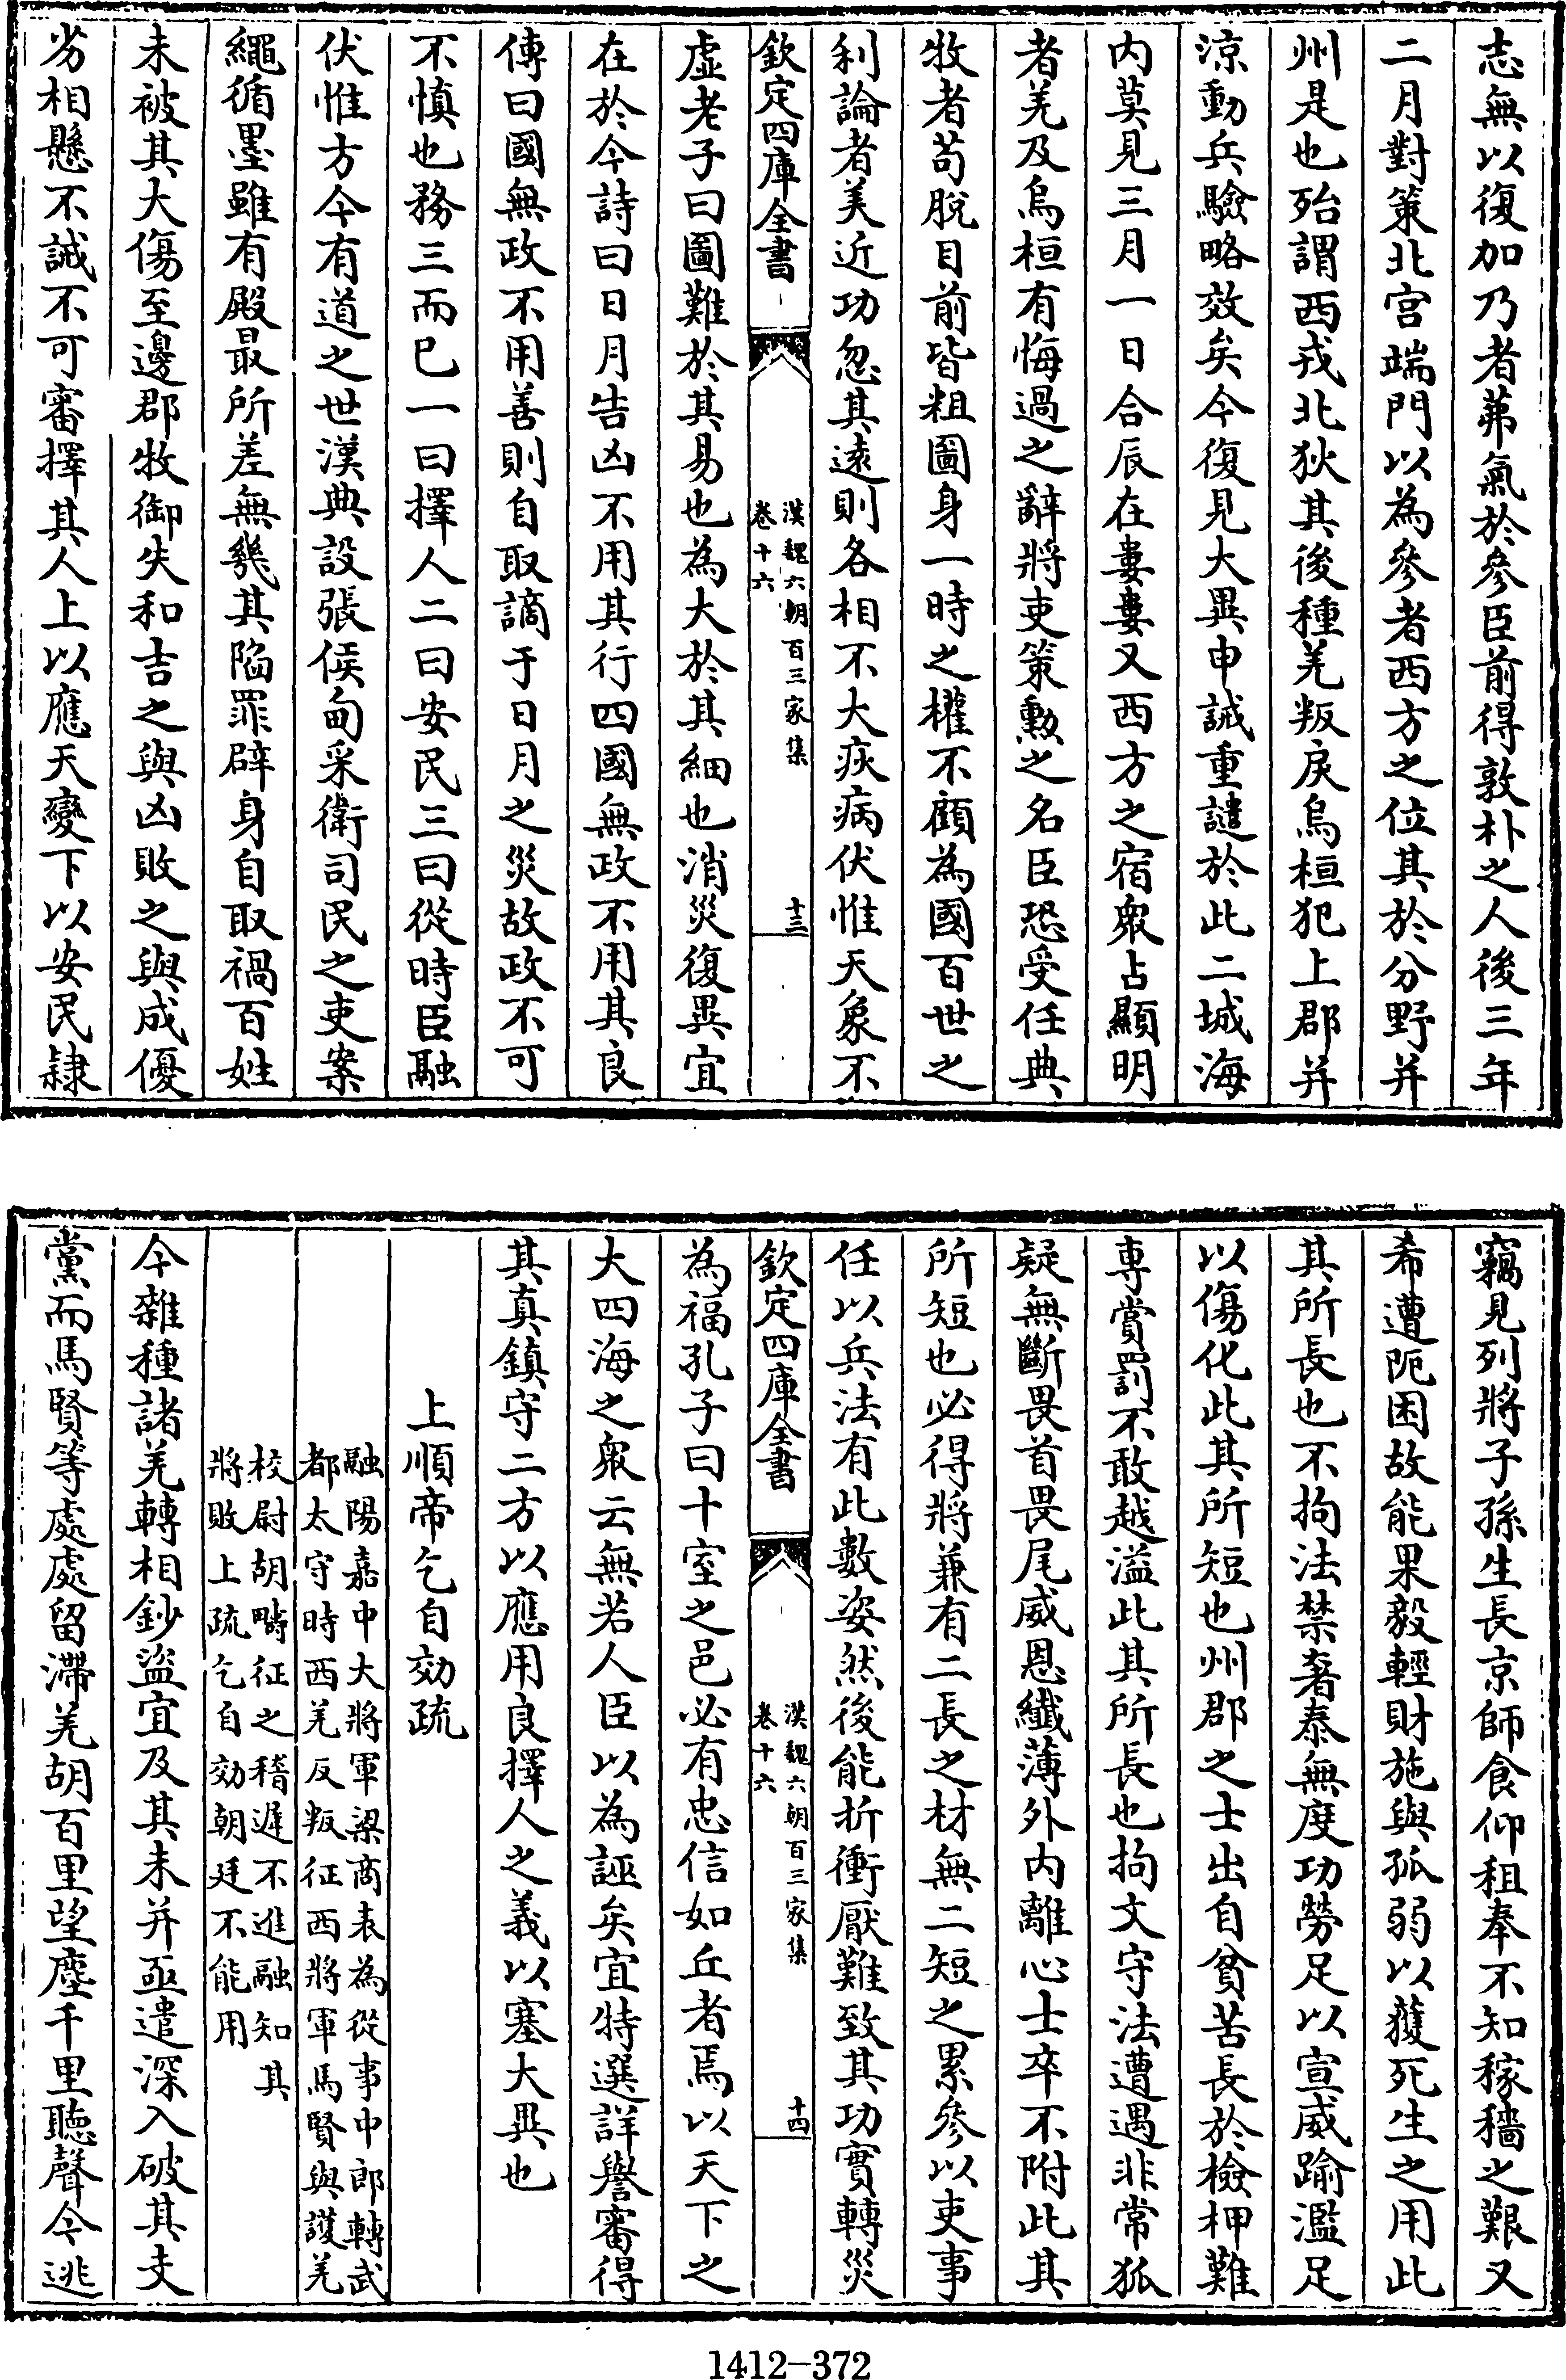 志無以復加乃者茀氣於參臣前得敦朴之人後三年
二月對策北宫端門以為參者西方之位其於分野并
州是也殆謂西戎北狄其後種羌叛戾烏桓犯上郡并
涼動兵驗略效矣今復見大異申誡重譴於此二城海
内莫見三月一日合辰在婁婁又西方之宿衆占顯明
者羌及烏桓有悔過之辭將吏策勲之名臣恐受任典
牧者苟脱目前皆粗圖身一時之權不顧為國百世之
利論者美近功忽其遠則各相不大疢病伏惟天象不
欽定四庫全書
漢魏六朝百三家集
卷十六
十三
虚老子曰圖難於其易也為大於其細也消災復異宜
在於今詩曰日月告凶不用其行四國無政不用其良
傳曰國無政不用善則自取謫于日月之災故政不可
不慎也務三而已一曰擇人二曰安民三曰從時臣融
伏惟方今有道之世漢典設張侯甸采衛司民之吏案
繩循墨雖有殿最所差無幾其陷罪辟身自取禍百姓
未被其大傷至邊郡牧御失和吉之與凶敗之與成優
劣相懸不誡不可審擇其人上以應天變下以安民隸
竊見列將子孫生長京師食仰租奉不知稼穡之艱又
希遭阨困故能果毅輕財施與孤弱以獲死生之用此
其所長也不拘法禁奢泰無度功勞足以宣威踰濫足
以傷化此其所短也州郡之士出自貧苦長於檢柙難
専賞罰不敢越溢此其所長也拘文守法遭遇非常狐
疑無斷畏首畏尾威恩纖薄外内離心士卒不附此其
所短也必得將兼有二長之材無二短之累參以吏事
任以兵法有此數姿然後能折衝厭難致其功實轉災
欽定四庫全書
漢魏六朝百三家集
卷十六
十四
為福孔子曰十室之邑必有忠信如丘者焉以天下之
大四海之衆云無若人臣以為誣矣宜特選詳譽審得
其真鎮守二方以應用良擇人之義以塞大異也
上順帝乞自効疏
融陽嘉中大將軍梁商表為從事中郎轉武
都太守時西羌反叛征西將軍馬賢與護羌
校尉胡疇征之稽遲不進融知其
將敗上疏乞自効朝廷不能用
今雜種諸羌轉相鈔盜宜及其未并亟遣深入破其支
黨而馬賢等處處留滯羌胡百里望塵千里聽聲今逃
1412-372